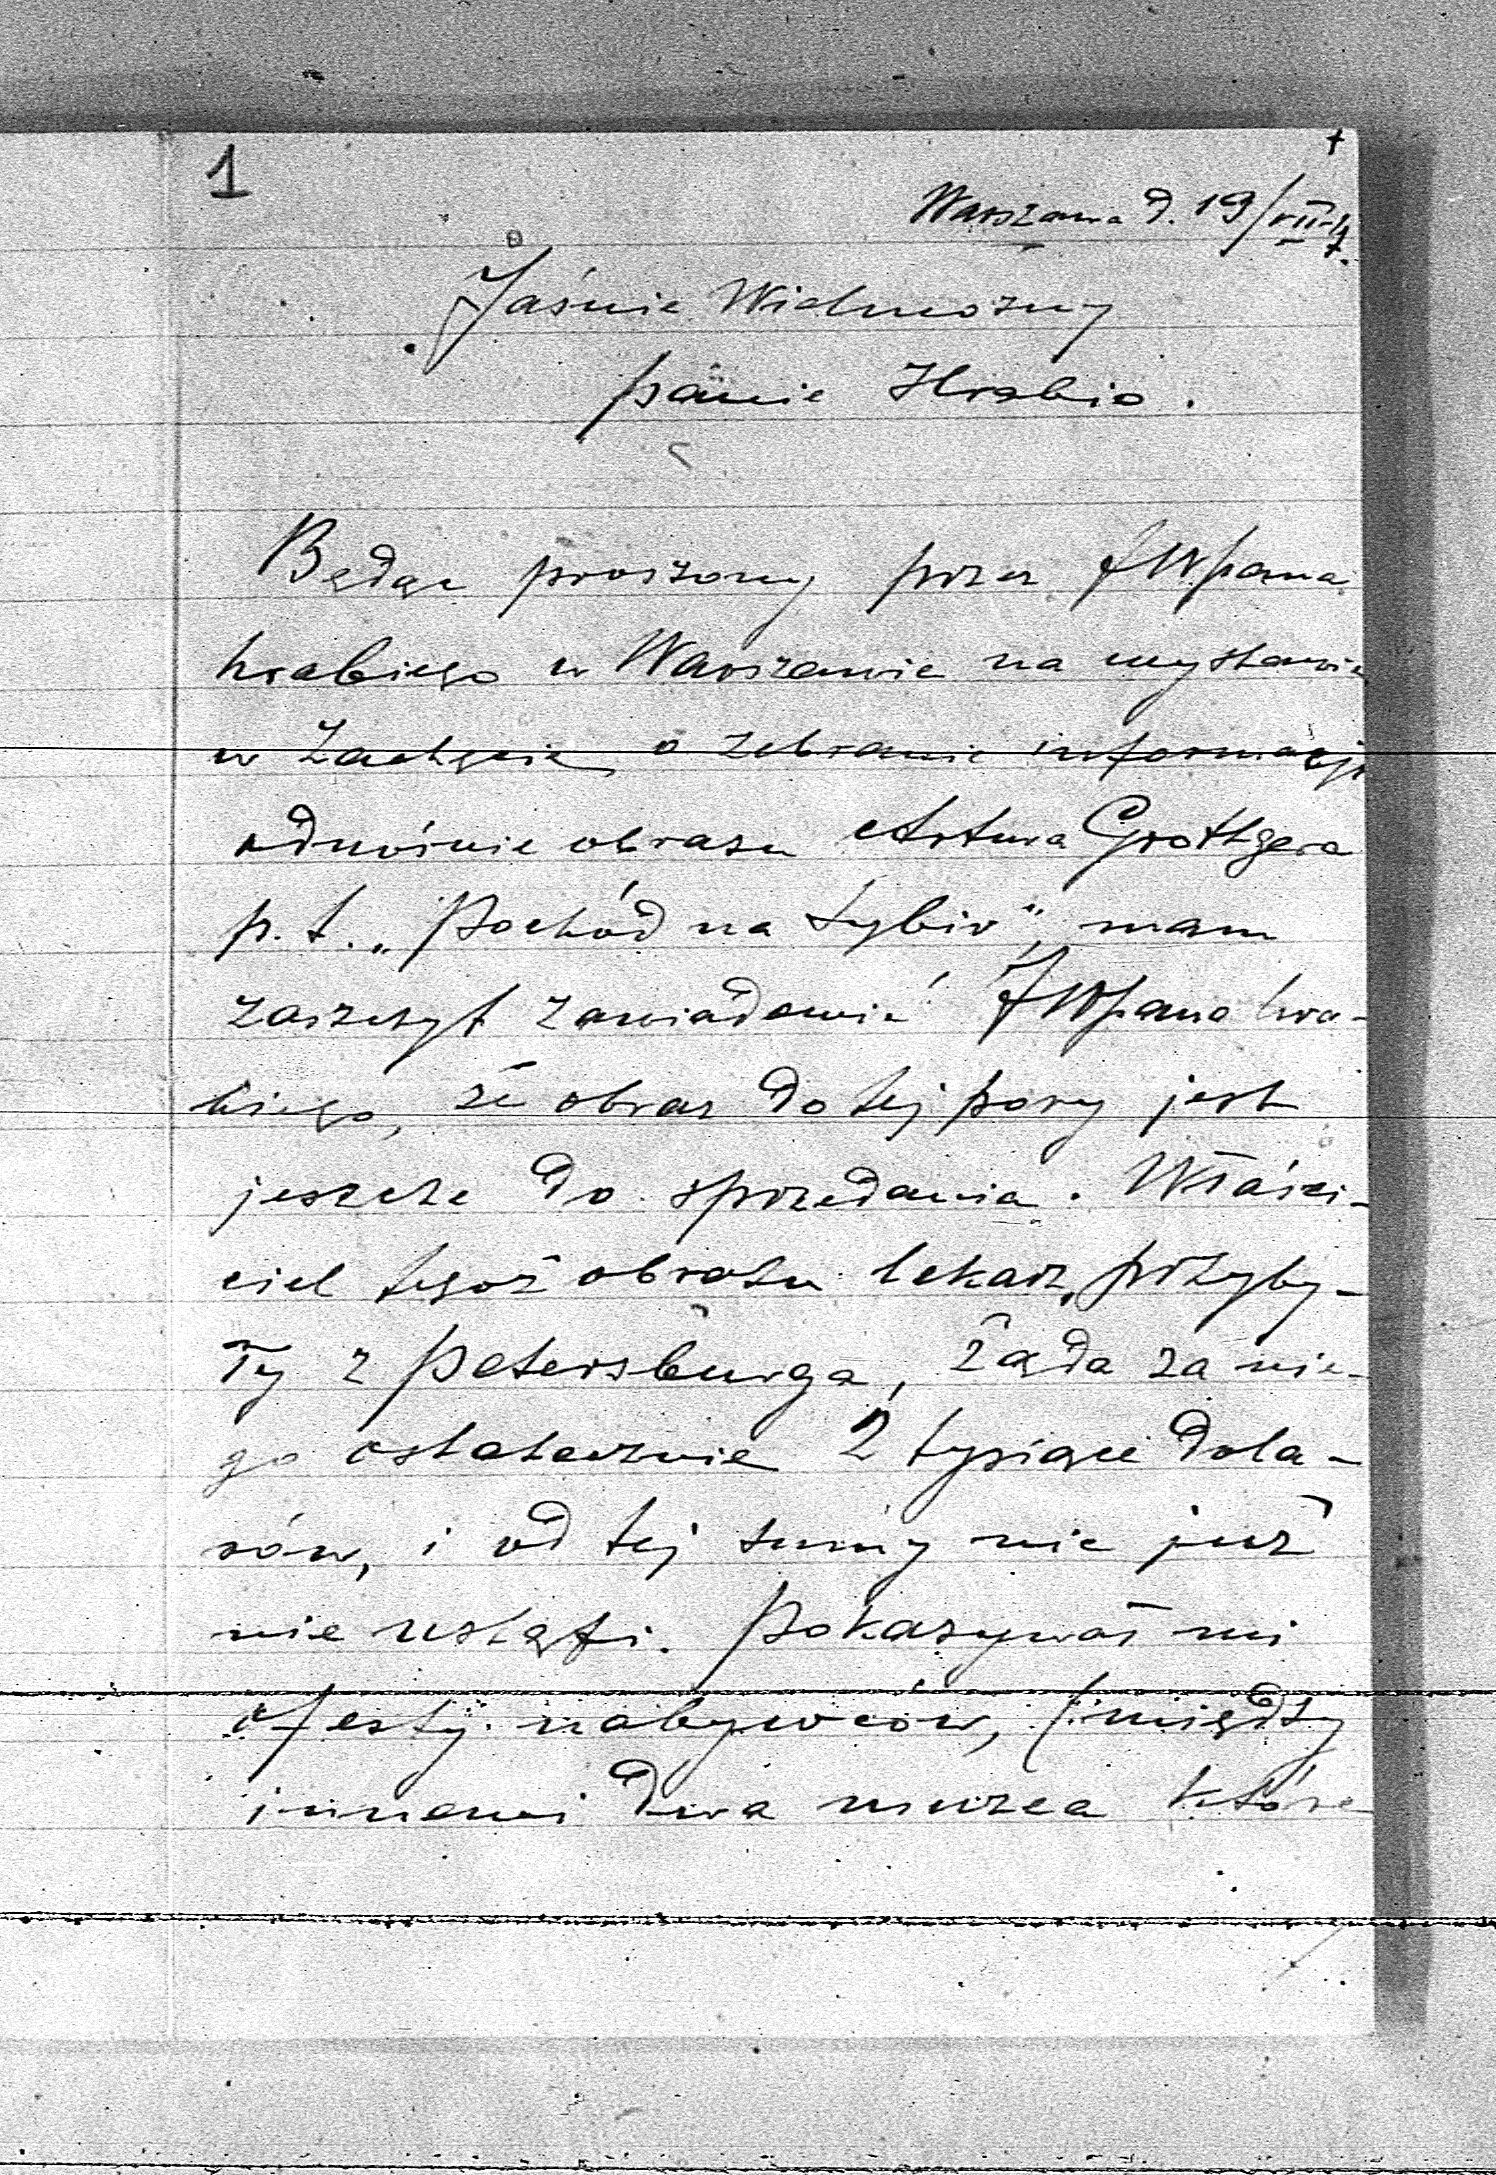 1
Warszawa d. 19/VII
Jaśnie Wielmożny
panie Hrabio.
Będąc proszony przez JWpana
hrabiego w Warszawie na wystawie
w Zachęcie, o zebranie informacji
odnośnie obrazu Artura Grottgera
p. t. „Pochód na Sybir”, mam
zaszczyt zawiadomić JWpana hra-
biego, że obraz do tej pory jest
jeszcze do sprzedania. Właści-
ciel tegoż obrazu lekarz, przyby-
ły z Petersburga, żąda za nie-
go ostatecznie 2 tysiące dola-
rów, i od tej sumy nic już
nie ustąpi. Pokazywał mi
oferty nabywców, (między
innemi dwa muzea które